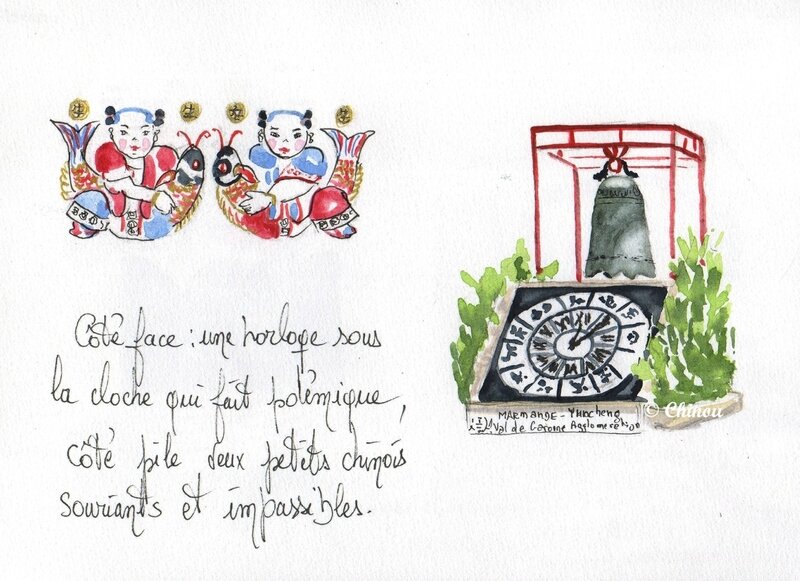 Côté face : une horloge sous
la cloche qui fait polémique,
côté pile deux petits chinois
souriants et impassibles.
MARMANDE - Yuncheng
Val de Garonne Agglomération
© Chihou